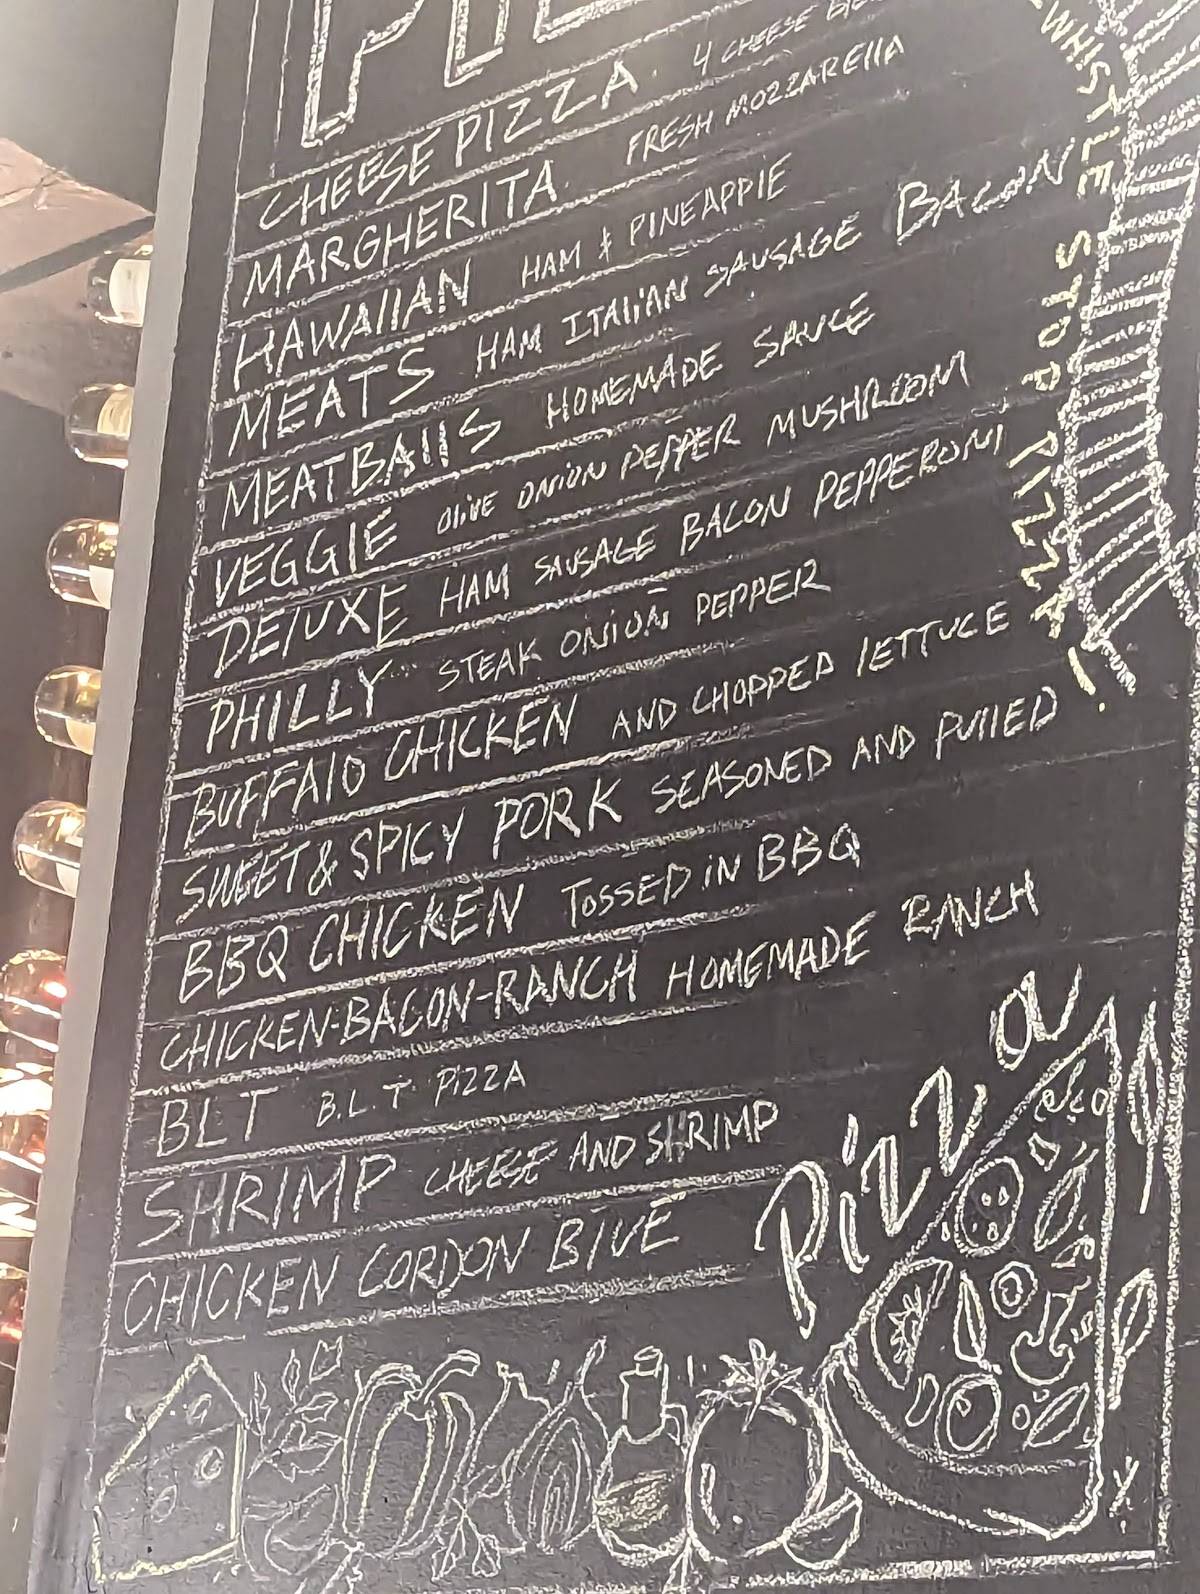 CHEESE PIZZA 4 CHEESE
MARGHERITA FRESH MOZZARELLA
HAWAIIAN HAM & PINEAPPLE
MEATS HAM ITALIAN SAUSAGE BACON
MEATBALLS HOMEMADE SAUCE
VEGGIE OLIVE ONION PEPPER MUSHROOM
DELUXE HAM SAUSAGE BACON PEPPERONI
PHILLY STEAK ONION PEPPER
BUFFALO CHICKEN AND CHOPPED LETTUCE
SWEET & SPICY PORK SEASONED AND PULLED
BBQ CHICKEN TOSSED IN BBQ
CHICKEN-BACON-RANCH HOMEMADE RANCH
BLT B.L T PIZZA
SHRIMP CHEESE AND SHRIMP
CHICKEN CORDON BLUE
WHISTLE
STOP
Pizza